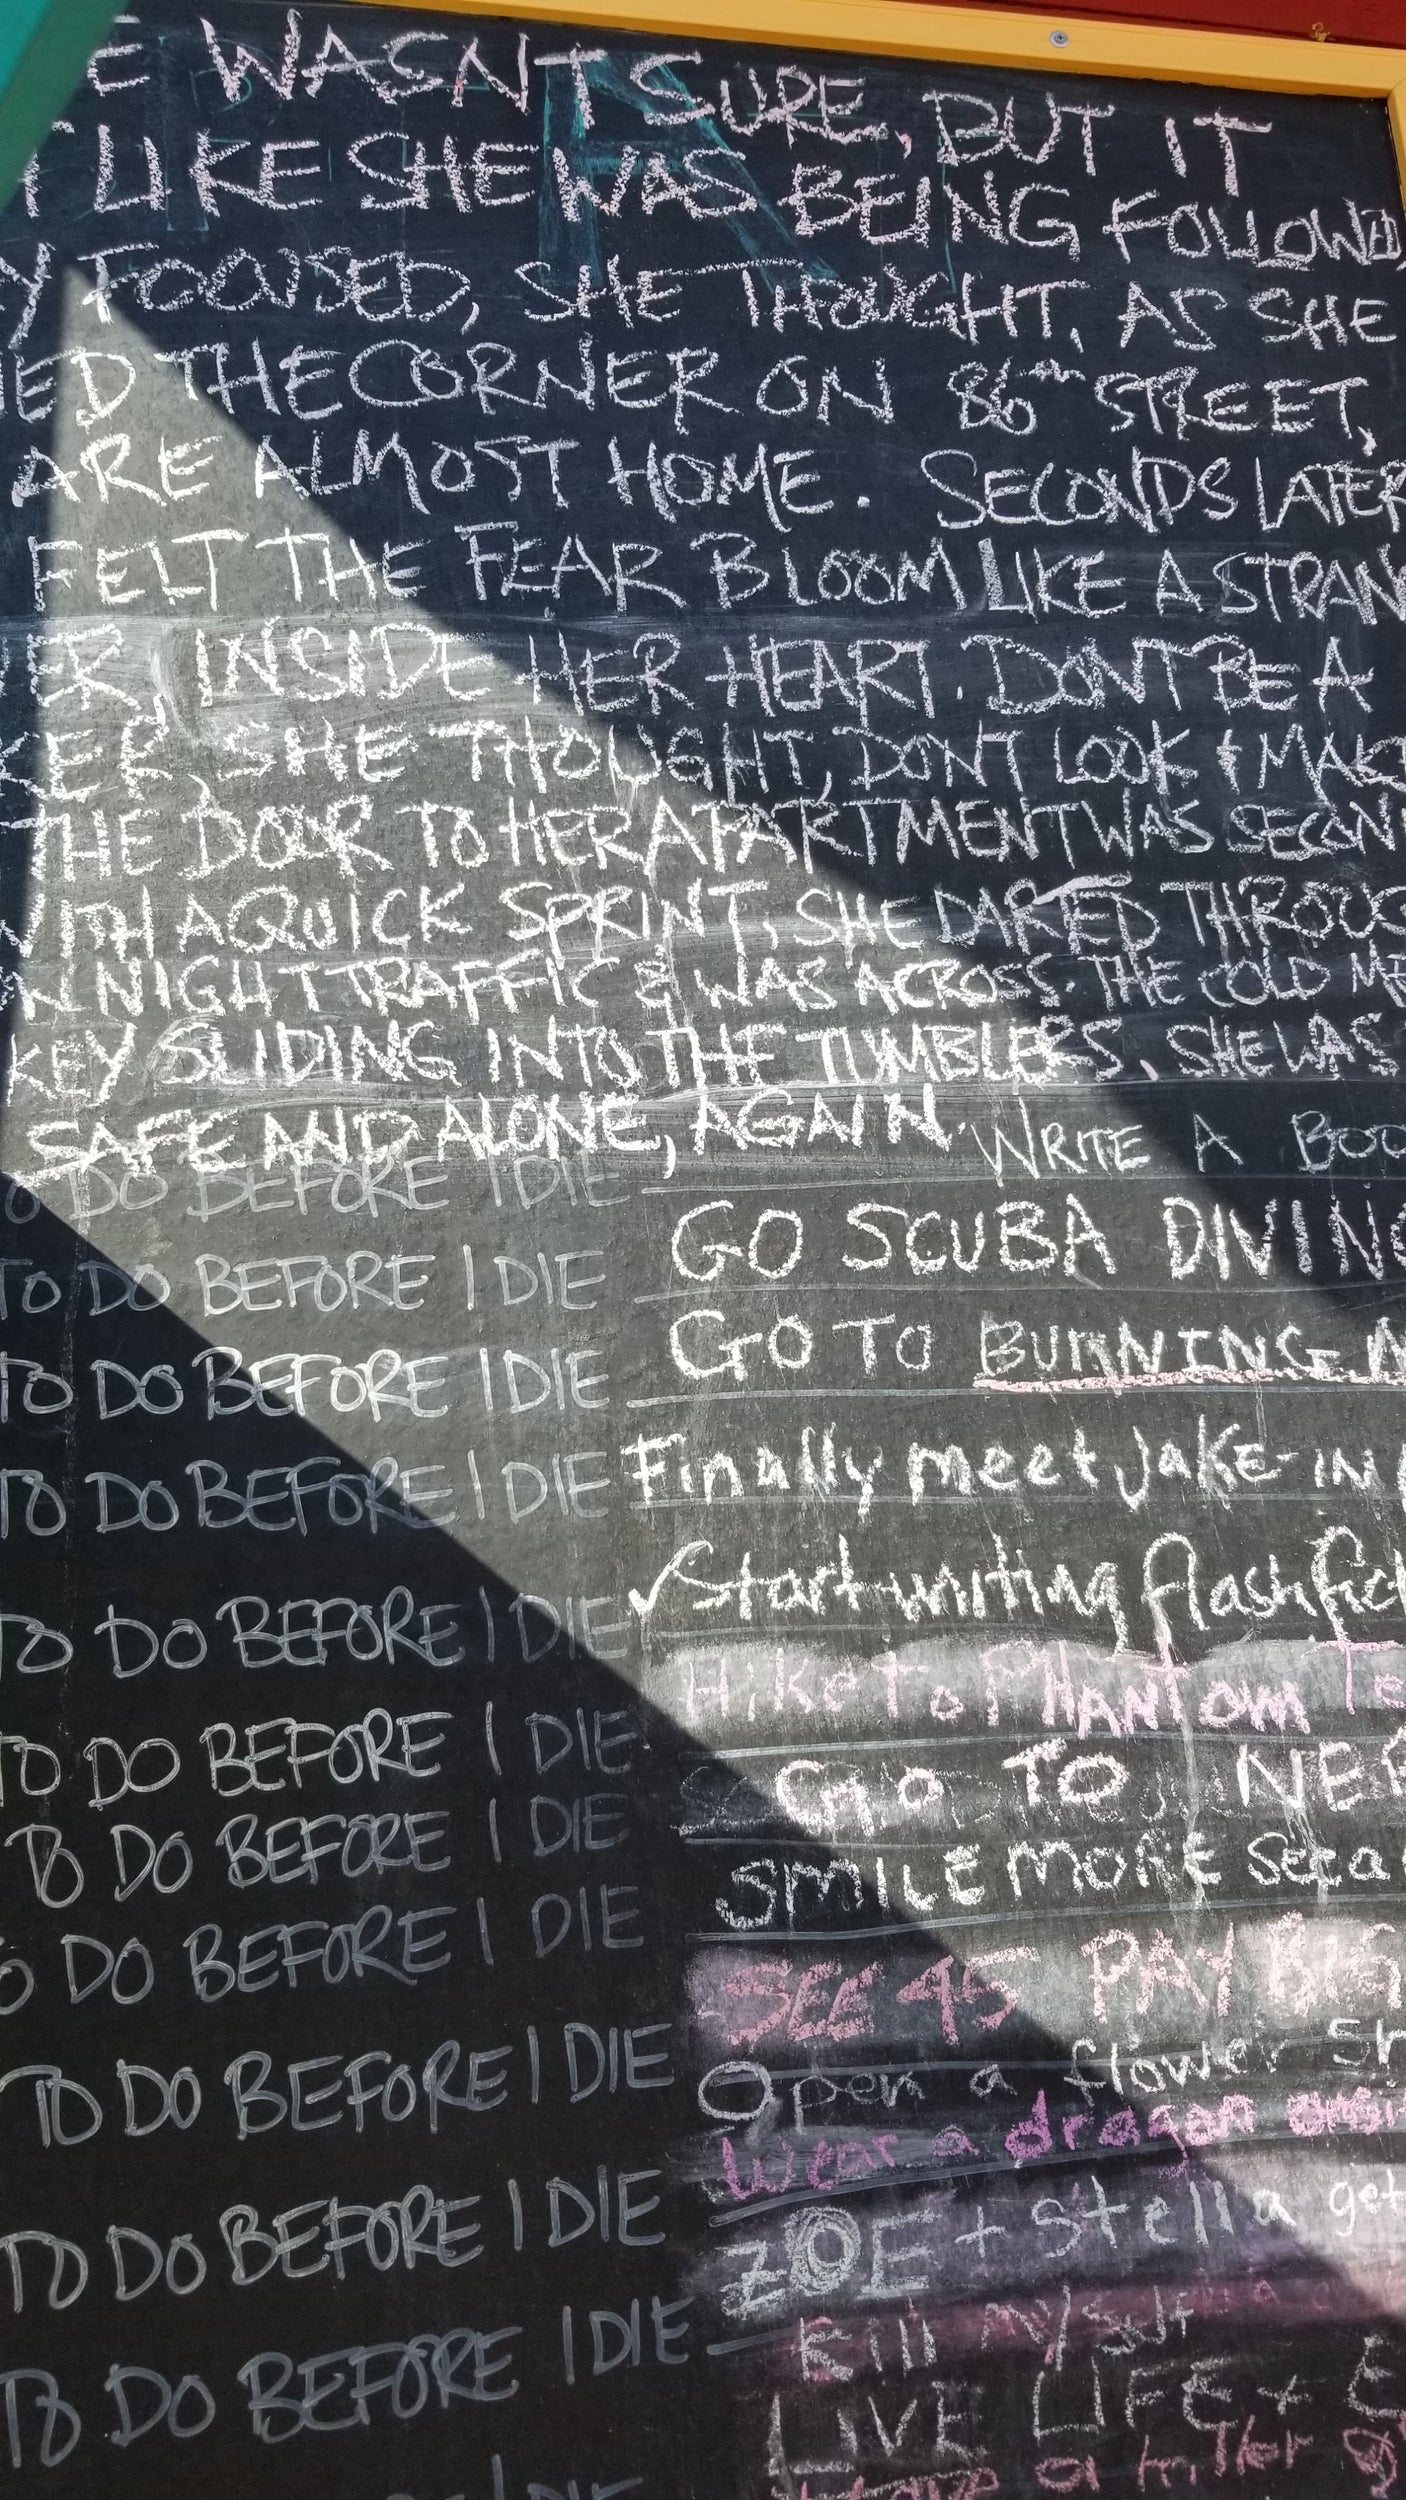 E WASN'T SURE, BUT IT
T LIKE SHE WAS BEING FOLLOWED,
Y FOCUSED, SHE THOUGHT, AS SHE
NED THE CORNER ON 86TH STREET,
ARE ALMOST HOME. SECONDS LATER
FELT THE FEAR BLOOM LIKE A STRAN
ER, INSIDE HER HEART. DON'T BE A
KER, SHE THOUGHT, DON'T LOOK & MAKE
THE DOOR TO HER APARTMENT WAS SECON
WITH A QUICK SPRINT, SHE DARTED THROUG
NIGHT TRAFFIC & WAS ACROSS. THE COLD ME
KEY SLIDING INTO THE TUMBLERS, SHE WAS
SAFE AND ALONE, AGAIN.
TO DO BEFORE I DIE WRITE A BOO
TO DO BEFORE I DIE GO SCUBA DIVING
TO DO BEFORE I DIE GO TO BURNING M
TO DO BEFORE I DIE Finally meet JAKE-IN
TO DO BEFORE I DIE ✓Start writing flash fict
HikE to PHANTOM Te
TO DO BEFORE I DIE GO TO NE
TO DO BEFORE I DIE SMILE MORE
TO DO BEFORE I DIE SEE 45 PAY BIG
TO DO BEFORE I DIE Open a flower sh
Wear a dragon onsi
TO DO BEFORE I DIE ZOE + Stella get
TO DO BEFORE I DIE Kill MYSElf
LIVE LIFE + E
Have a killer
I DIE